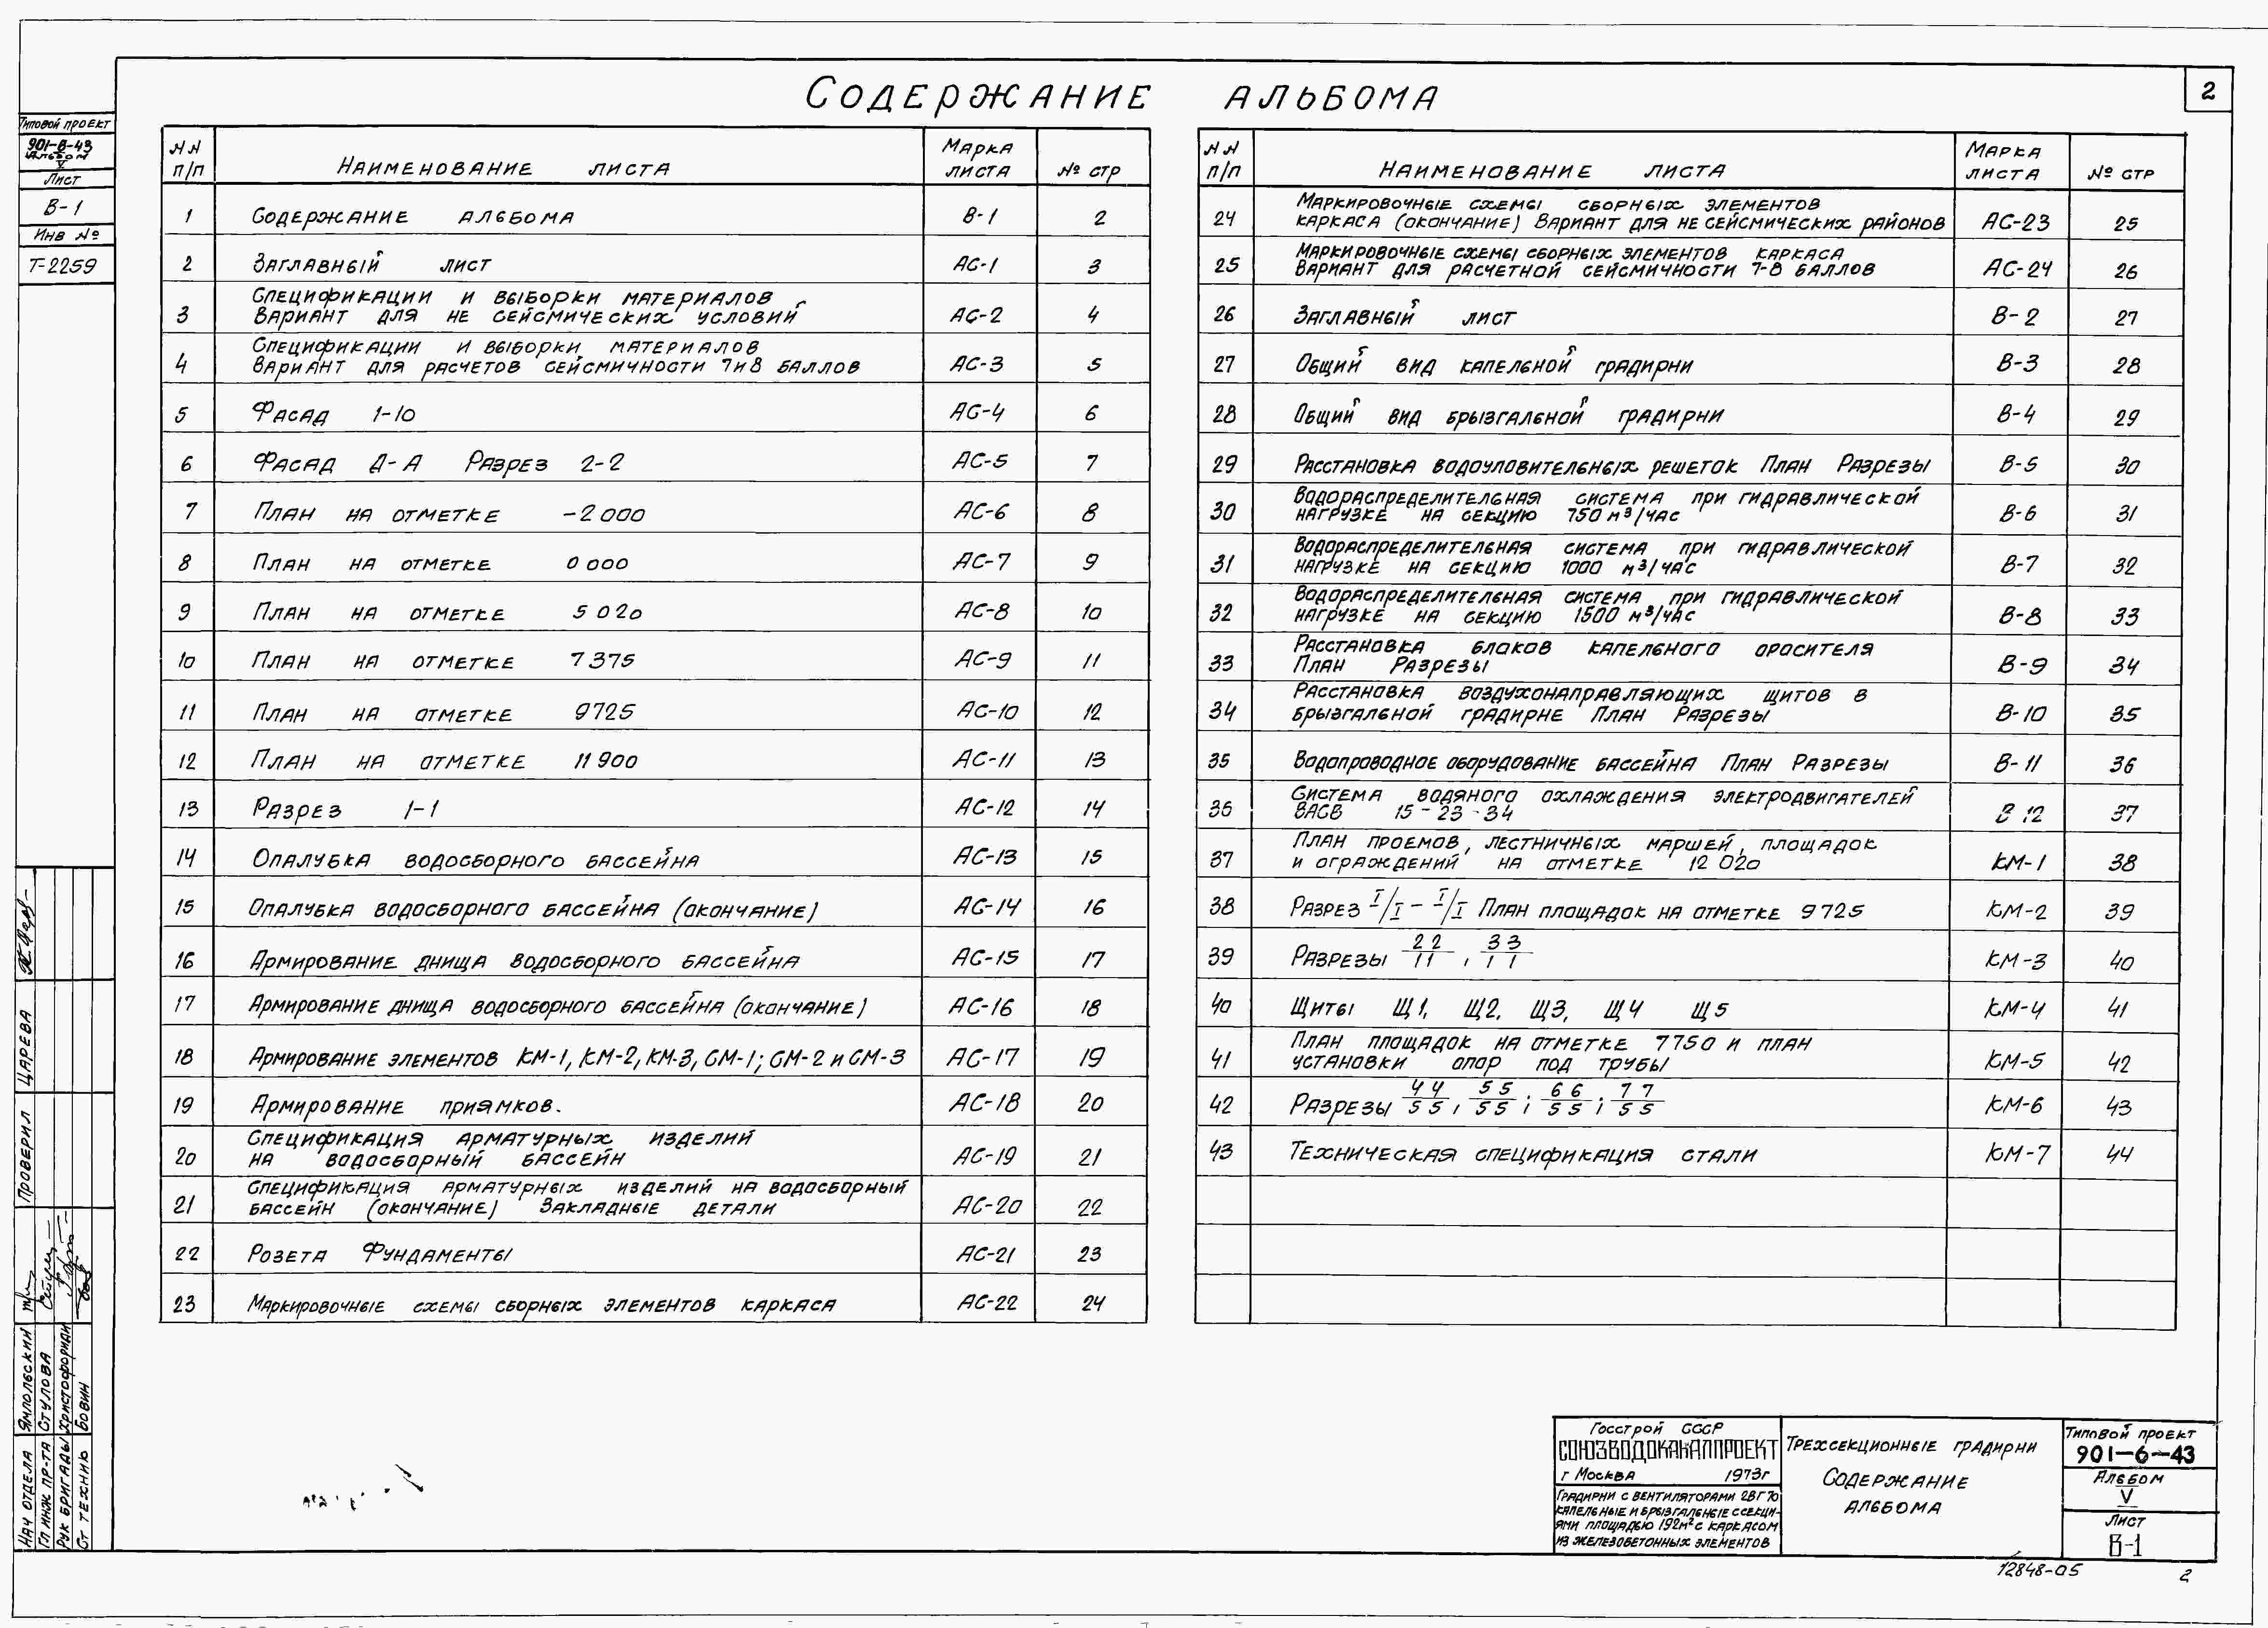 2
Содержание альбома
Типовой проект
901-6-43
Альбом
V
Лист
В-1
Инв №
Т-2259
№№ п/п Наименование листа Марка листа № стр
1 Содержание альбома В-1 2
2 Заглавный лист АС-1 3
3 Спецификации и выборки материалов
Вариант для не сейсмических условий АС-2 4
4 Спецификации и выборки материалов
Вариант для расчетов сейсмичности 7и8 баллов АС-3 5
5 Фасад 1-10 АС-4 6
6 Фасад Д-А Разрез 2-2 АС-5 7
7 План на отметке -2 000 АС-6 8
8 План на отметке 0 000 АС-7 9
9 План на отметке 5 020 АС-8 10
10 План на отметке 7 375 АС-9 11
11 План на отметке 9725 АС-10 12
12 План на отметке 11 900 АС-11 13
13 Разрез 1-1 АС-12 14
14 Опалубка водосборного бассейна АС-13 15
15 Опалубка водосборного бассейна (окончание) АС-14 16
16 Армирование днища водосборного бассейна АС-15 17
17 Армирование днища водосборного бассейна (окончание) АС-16 18
18 Армирование элементов КМ-1, КМ-2, КМ-3, СМ-1; СМ-2 и СМ-3 АС-17 19
19 Армирование приямков. АС-18 20
20 Спецификация арматурных изделий
на водосборный бассейн АС-19 21
21 Спецификация арматурных изделий на водосборный
бассейн (окончание) Закладные детали АС-20 22
22 Розета Фундаменты АС-21 23
23 Маркировочные схемы сборных элементов каркаса АС-22 24
№№ п/п Наименование листа Марка листа № стр
24 Маркировочные схемы сборных элементов
каркаса (окончание) Вариант для не сейсмических районов АС-23 25
25 Маркировочные схемы сборных элементов каркаса
Вариант для расчетной сейсмичности 7-8 баллов АС-24 26
26 Заглавный лист В-2 27
27 Общий вид капельной градирни В-3 28
28 Общий вид брызгальной градирни В-4 29
29 Расстановка водоуловительных решеток План Разрезы В-5 30
30 Водораспределительная система при гидравлической
нагрузке на секцию 750 м³/час В-6 31
31 Водораспределительная система при гидравлической
нагрузке на секцию 1000 м³/час В-7 32
32 Водораспределительная система при гидравлической
нагрузке на секцию 1500 м³/час В-8 33
33 Расстановка блоков капельного оросителя
План Разрезы В-9 34
34 Расстановка воздухонаправляющих щитов в
брызгальной градирне План Разрезы В-10 35
35 Водопроводное оборудование бассейна План Разрезы В-11 36
36 Система водяного охлаждения электродвигателей
ВАСВ 15-23-34 В 12 37
37 План проемов, лестничных маршей, площадок
и ограждений на отметке 12 020 КМ-1 38
38 Разрез I/I - I/I План площадок на отметке 9725 КМ-2 39
39 Разрезы 2 2/1 1, 3 3/1 1 КМ-3 40
40 Щиты Щ1, Щ2, Щ3, Щ4 Щ5 КМ-4 41
41 План площадок на отметке 7 750 и план
установки опор под трубы КМ-5 42
42 Разрезы 4 4/5 5, 5 5/5 5; 6 6/5 5; 7 7/5 5 КМ-6 43
43 Техническая спецификация стали КМ-7 44
Проверил Царева
Нач отдела Ямпольский
Гл инж пр-та Стулова
Рук бригады Христофориди
Ст техник Бовин
Госстрой СССР
СОЮЗВОДОКАНАЛПРОЕКТ
г Москва 1973г
Градирни с вентиляторами 2ВГ70
капельные и брызгальные с секци-
ями площадью 192м² с каркасом
из железобетонных элементов
Трехсекционные градирни
Содержание
альбома
Типовой проект
901-6-43
Альбом
V
Лист
В-1
12848-05
2